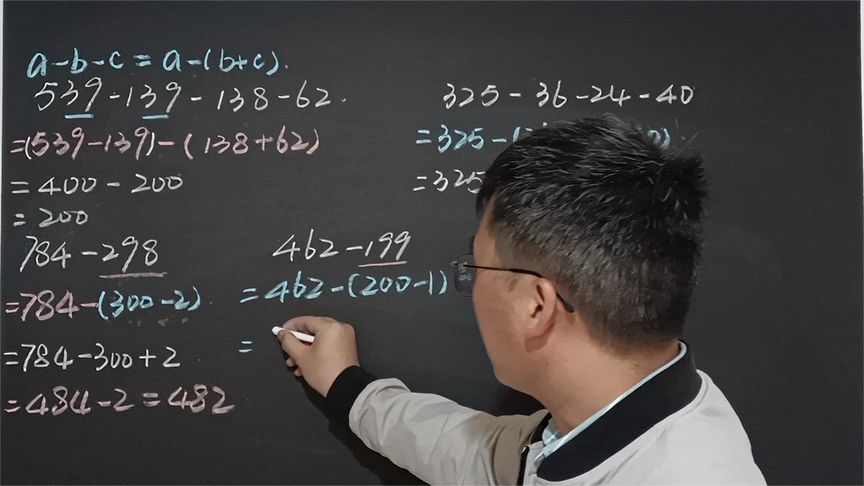 a-b-c=a-(b+c).
539-139-138-62.
=(539-139)-(138+62)
=400-200
=200
325-36-24-40
=325-(
=325
784-298
=784-(300-2)
=784-300+2
=484-2=482
462-199
=462-(200-1)
=